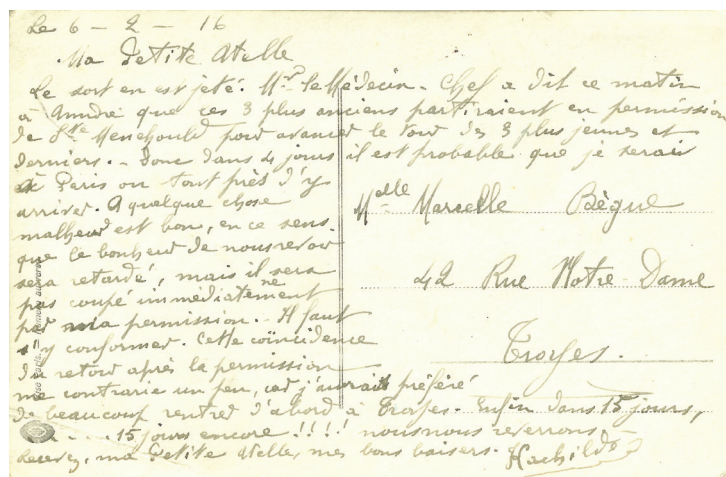 Le 6 - 2 - 16
Ma Petite Atelle
Le sort en est jeté. Mr le Médecin-Chef a dit ce matin
à que ces 3 plus anciens partiraient en permission
de Ste Menehould pour avancer le tour des 3 plus jeunes et
derniers. - Donc dans 4 jours il est probable que je serai
à Paris ou tout près d'y
arriver. A quelque chose
malheur est bon, en ce sens
que le bonheur de nous revoir
sera retardé, mais il sera
pas coupé immédiatement
par ma permission. - Il faut
s'y conformer. Cette coïncidence
du retour après la permission
me contrarie un peu, car j'aurais préféré
de beaucoup rentrer d'abord à Troyes. Enfin dans 15 jours,
.... 15 jours encore !!!! nous nous reverrons.
Recevez, ma Petite Atelle, mes bons baisers.
Melle Marcelle Bègue
42 Rue Notre-Dame
Troyes.